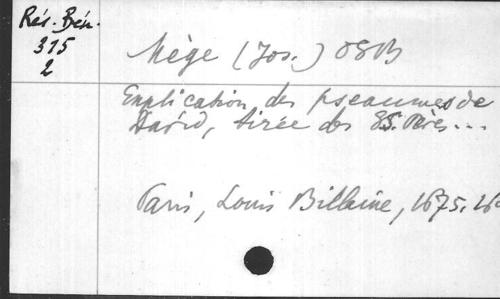 Rés. Bén.
315
2
Mège (Jos.) OSB
Explication des pseaumes de
David, tirée des SS. Pères...
Paris, Louis Billaine, 1675.